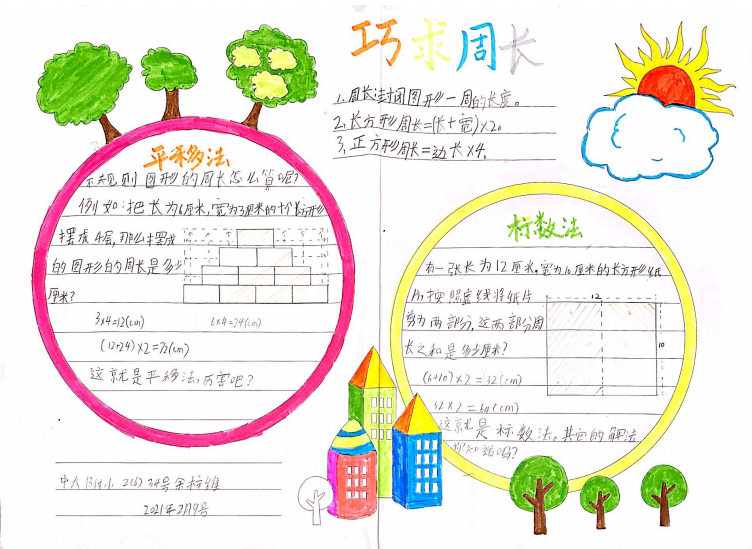 巧求周长
1、周长:封闭图形一周的长度。
2、长方形周长=(长+宽)×2。
3、正方形周长=边长×4。
平移法
不规则图形的周长怎么算呢?
例如:把长为6厘米,宽为3厘米的十个长方形
摆成4层,那么摆成
的图形的周长是多少
厘米?
3×4=12(cm) 6×4=24(cm)
(12+24)×2=72(cm)
这就是平移法,厉害吧?
标数法
有一张长为12厘米,宽为10厘米的长方形纸
片,按照虚线将纸片
剪为两部分,这两部分周
长之和是多少厘米?
12
10
(6+10)×2=32(cm)
32×2=64(cm)
这就是标数法。其它的解法
你知道吗?
中大附小 2(6) 34号 余梓维
2021年2月9号